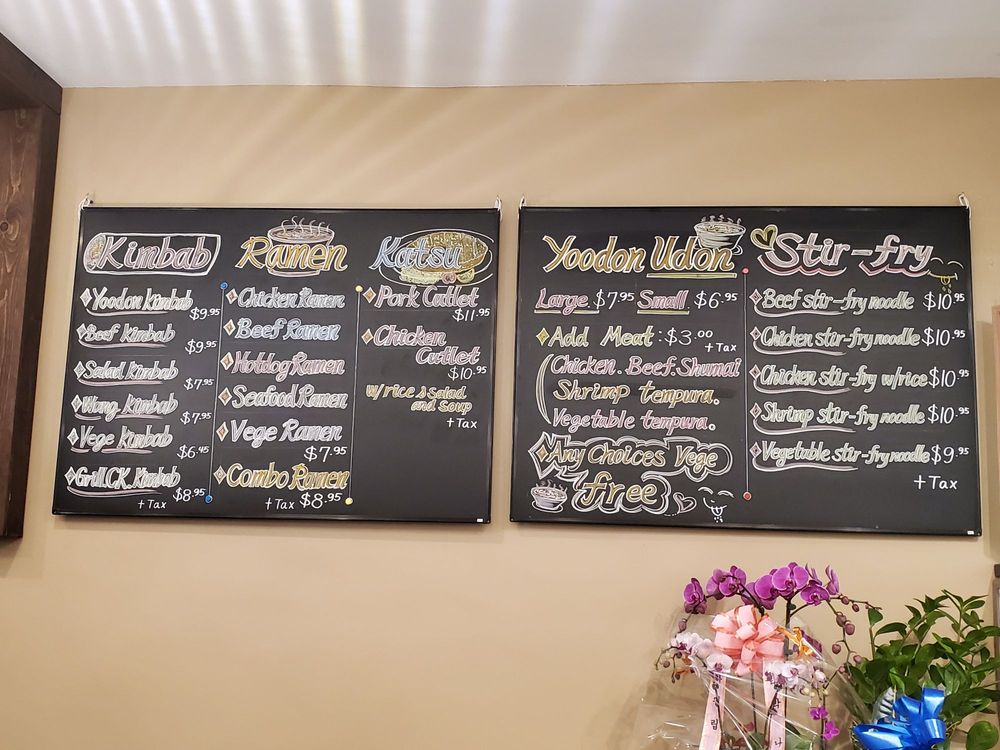 Kimbab
Yoodon Kimbab
$9.95
Beef Kimbab
$9.95
Salad Kimbab
$7.95
Wang Kimbab
$7.95
Vege Kimbab
$6.45
Grill.CK.Kimbab
$8.95
+ Tax
Ramen
Chicken Ramen
Beef Ramen
Hotdog Ramen
Seafood Ramen
Vege Ramen
$7.95
Combo Ramen
+ Tax $8.95
Katsu
Pork Cutlet
$11.95
Chicken
Cutlet
$10.95
w/rice & salad
and soup
+ Tax
Yoodon Udon
Large $7.95 Small $6.95
Add Meat : $3.00
+ Tax
Chicken. Beef. Shumai
Shrimp tempura.
Vegetable tempura.
Any Choices Vege
free
Stir-fry
Beef stir-fry noodle $10.95
Chicken stir-fry noodle $10.95
Chicken stir-fry w/rice $10.95
Shrimp stir-fry noodle $10.95
Vegetable stir-fry noodle $9.95
+ Tax